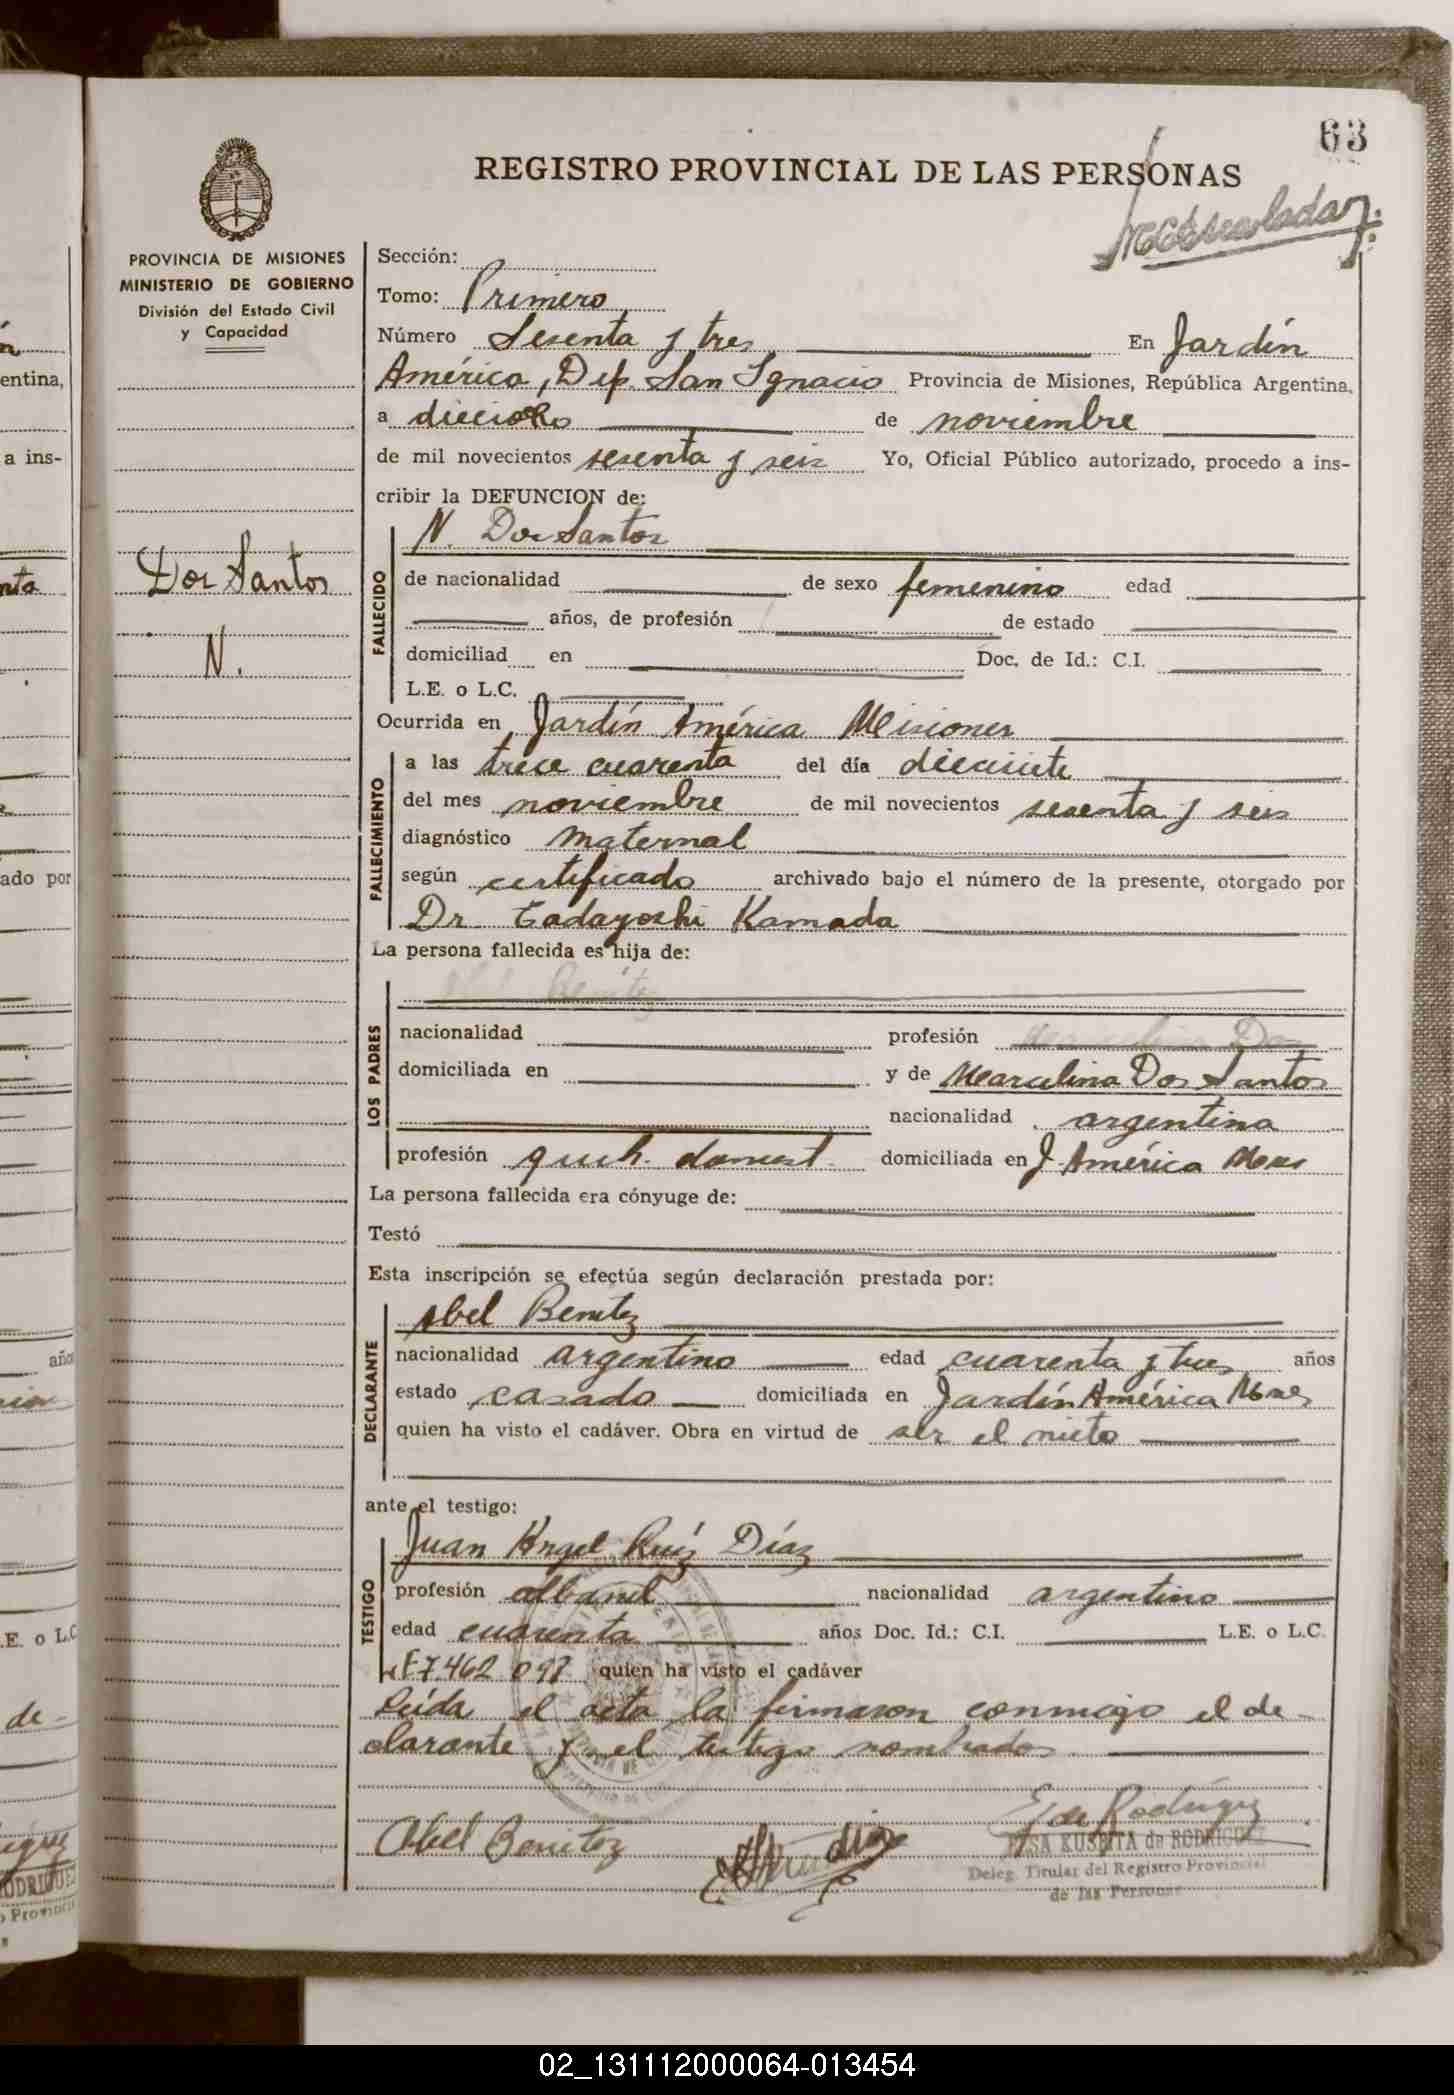 63
REGISTRO PROVINCIAL DE LAS PERSONAS
PROVINCIA DE MISIONES
MINISTERIO DE GOBIERNO
División del Estado Civil
y Capacidad
Dos Santos
N.
Sección:
Tomo: Primero
Número Sesenta y tres En Jardín
América, Dep. San Ignacio Provincia de Misiones, República Argentina,
a dieciocho de noviembre
de mil novecientos sesenta y seis Yo, Oficial Público autorizado, procedo a ins-
cribir la DEFUNCION de:
N. Dos Santos
FALLECIDO
de nacionalidad de sexo femenino edad
años, de profesión de estado
domiciliad en Doc. de Id.: C.I.
L.E. o L.C.
Ocurrida en Jardín América Misiones
FALLECIMIENTO
a las trece cuarenta del día diecisiete
del mes noviembre de mil novecientos sesenta y seis
diagnóstico maternal
según certificado archivado bajo el número de la presente, otorgado por
Dr. Tadayoshi Kamada
La persona fallecida es hija de:
LOS PADRES
Benítez
nacionalidad profesión
domiciliada en y de Marcelina Dos Santos
nacionalidad argentina
profesión queh. domest. domiciliada en J. América Mnes
La persona fallecida era cónyuge de:
Testó
Esta inscripción se efectúa según declaración prestada por:
DECLARANTE
Abel Benitez
nacionalidad argentino edad cuarenta y tres años
estado casado domiciliada en Jardín América Mnes
quien ha visto el cadáver. Obra en virtud de ser el
ante el testigo:
TESTIGO
Juan Angel Ruíz Díaz
profesión albanil nacionalidad argentino
edad cuarenta años Doc. Id.: C.I. L.E. o L.C.
7.462.097 quien ha visto el cadáver
Leída el acta la firmaron conmigo el de-
clarante y el testigo nombrados
Abel Benitez
E. de Rodríguez
ELSA KUSBITA de RODRIGUEZ
Deleg. Titular del Registro Provincial
de las Personas
02_131112000064-013454